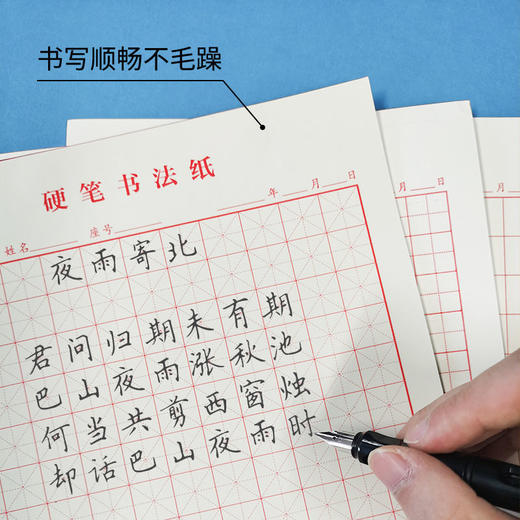 书写顺畅不毛躁
硬笔书法纸
姓名 座号 年 月 日
月 日
夜雨寄北
君问归期未有期
巴山夜雨涨秋池
何当共剪西窗烛
却话巴山夜雨时